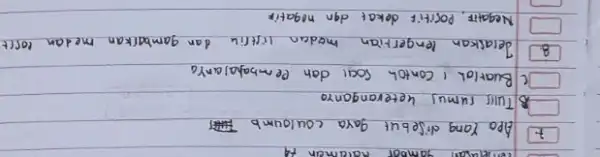 gambar halaman 14
7 Apa yang disebut gaya couloumb
B Tulis rumus keterangannya
C Buatlah 1 contoh soal dan pembahasannya
8 Jelaskan pengertian medan listrik dan gambarkan medan
Negatif, Positif dekat dgn negatif